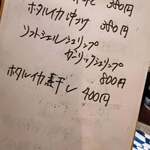 380円
ホタルイカ 380円
ソフトシェルシュリンプ
ガーリックシュリンプ
800円
ホタルイカ素干し
400円